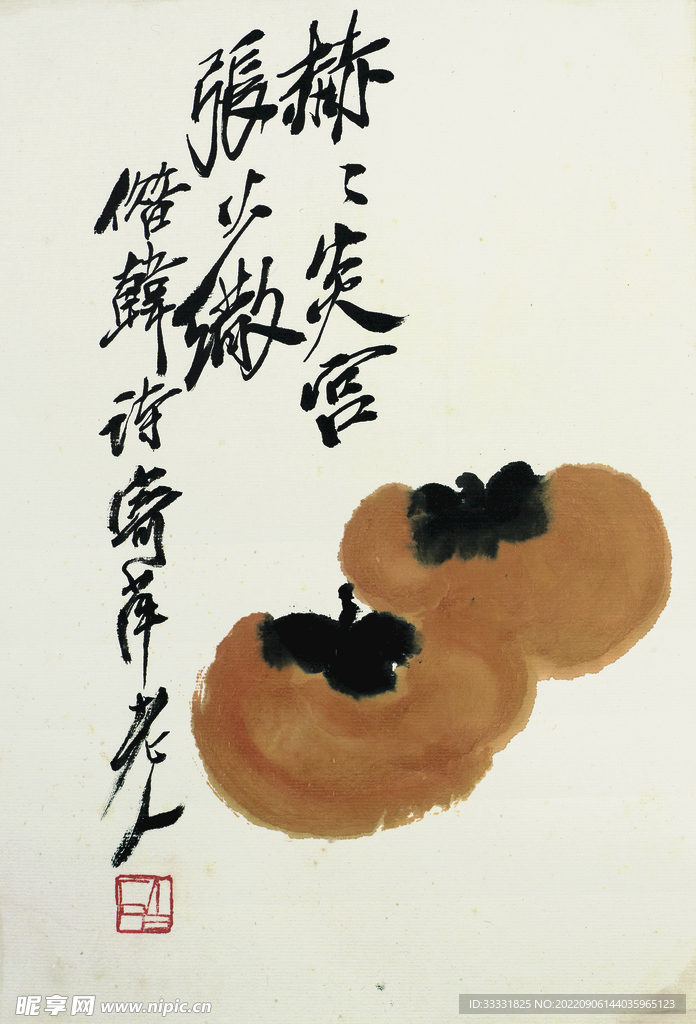 赫〻炎官
張火繖
借韓詩寄萍老人
昵享网 www.nipic.cn
ID:33331825 NO:20220906144035965123